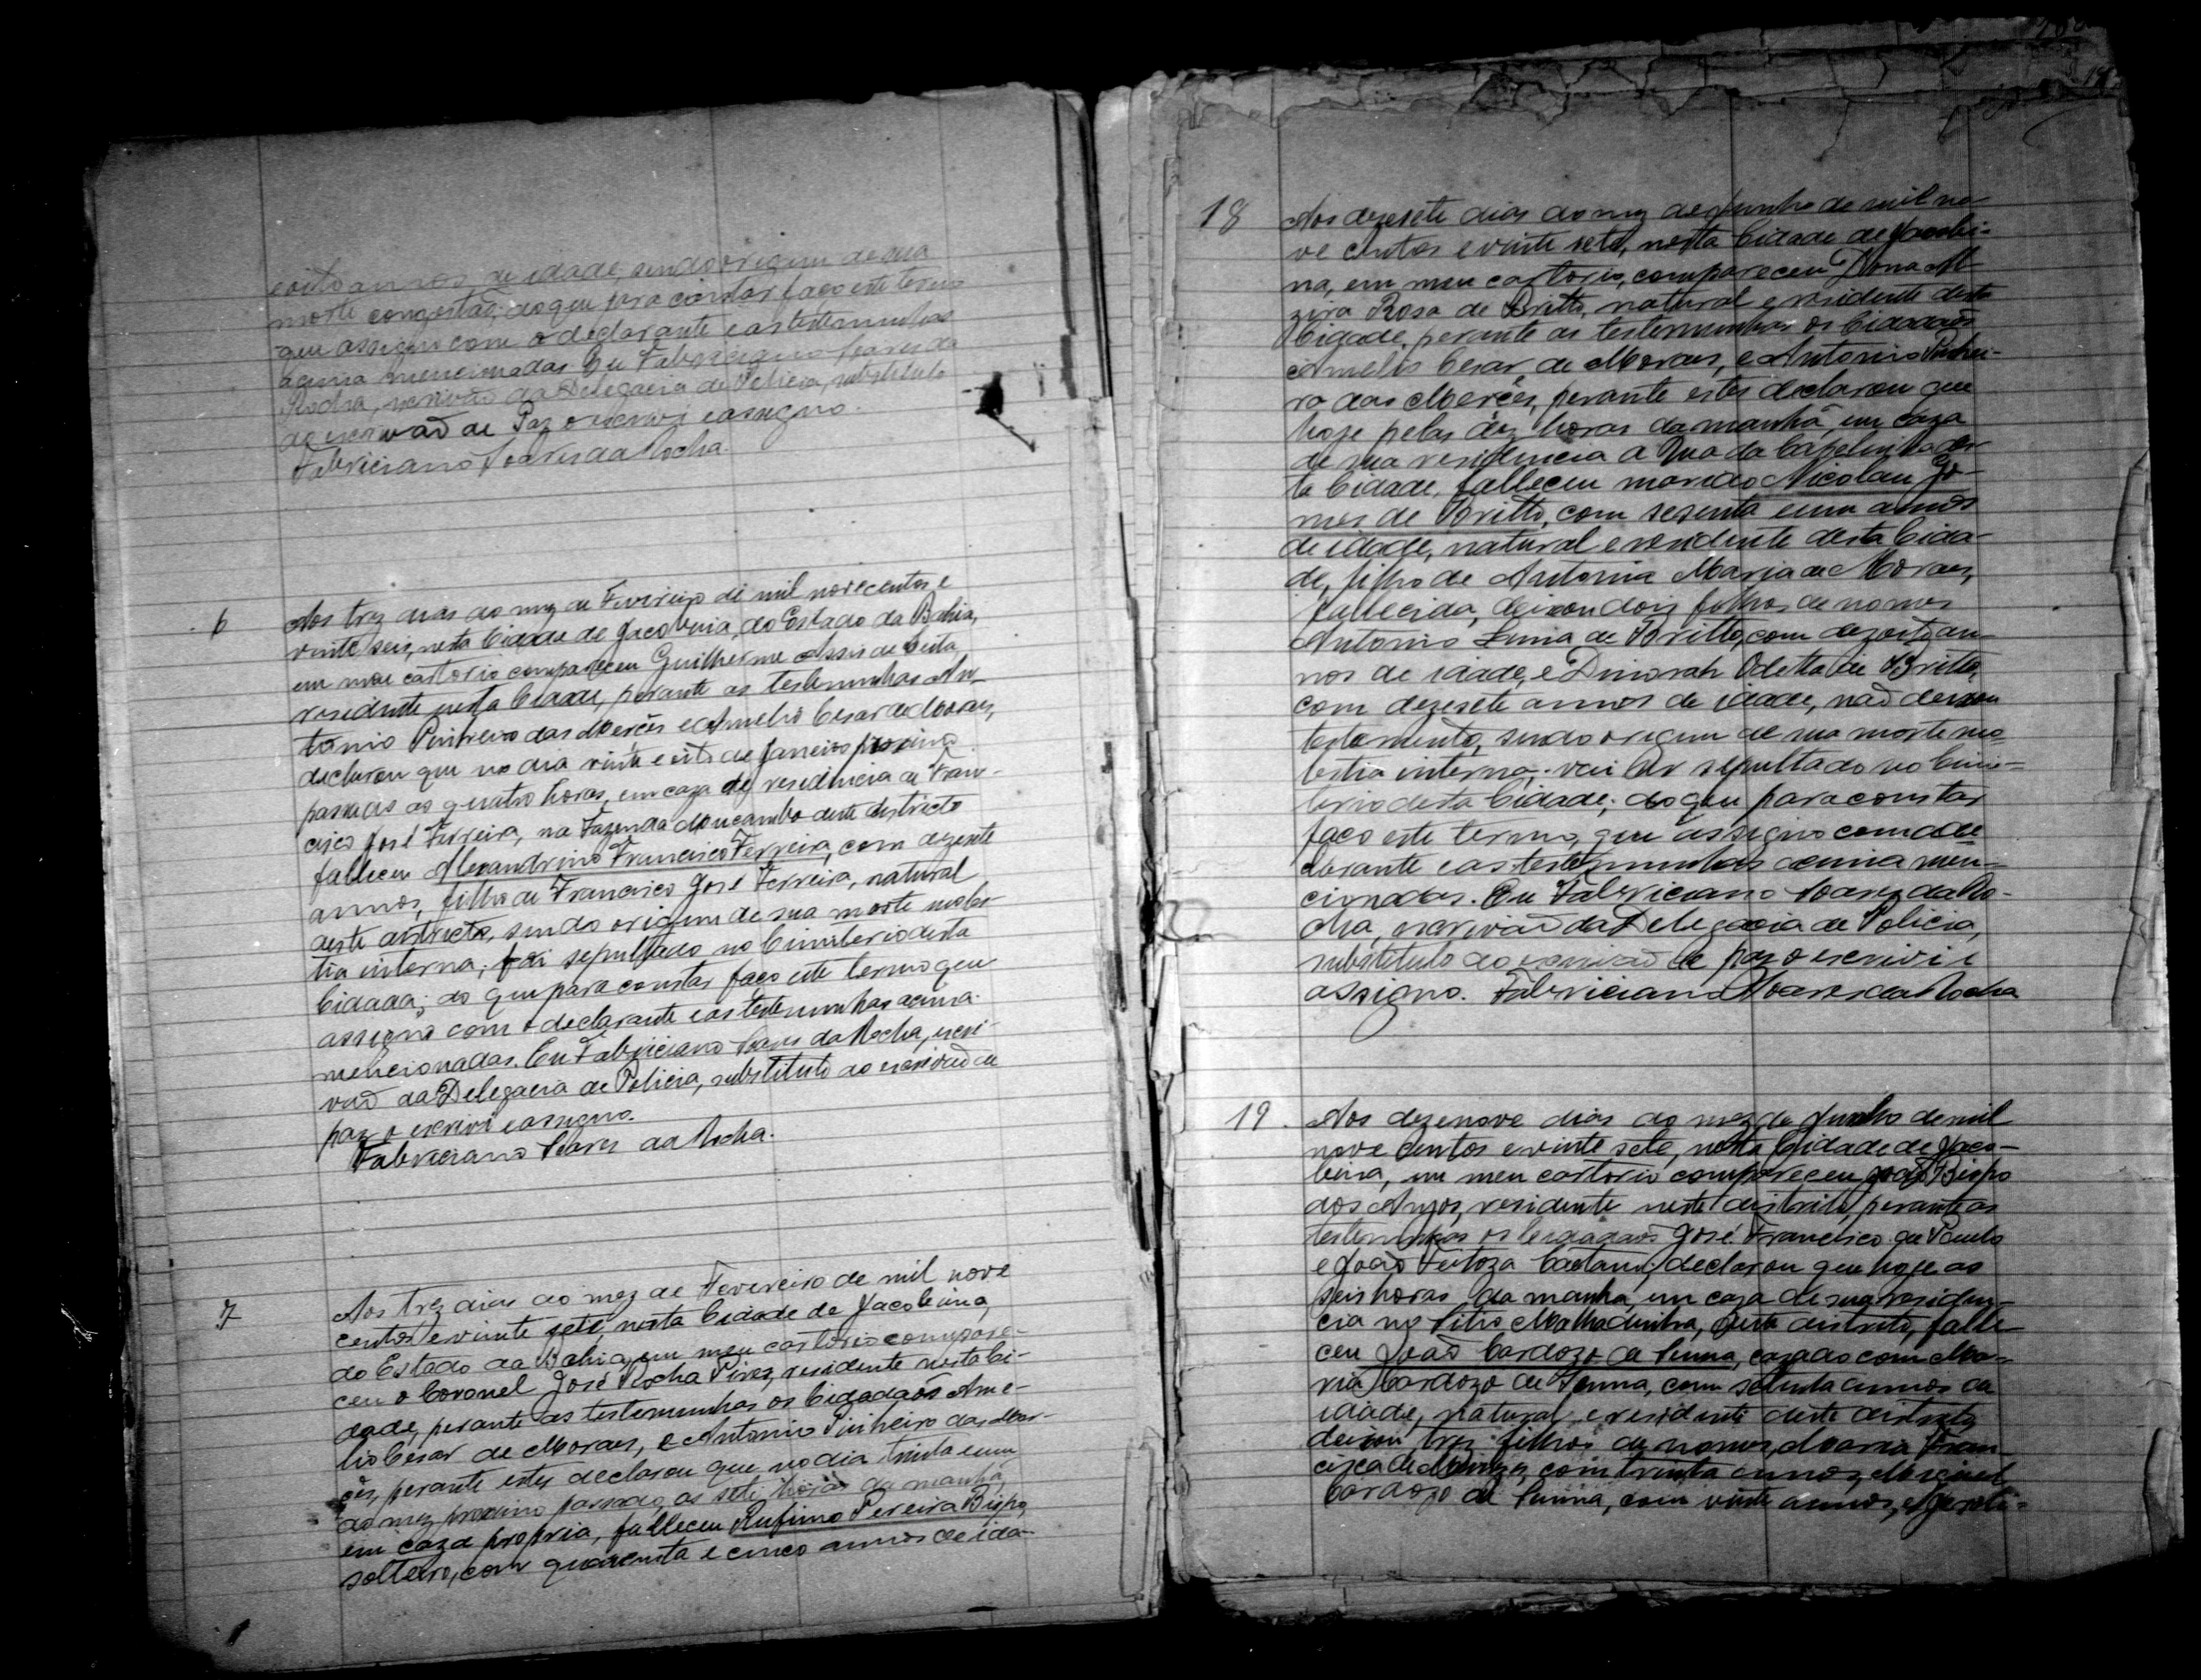 e oito annos de idade, sendo origem de sua
morte congestão; do que para constar faço este termo
que assigno com o declarante e as testemunhas
acima mencionadas. Eu Fabriciano Soares da
Rocha, escrivão da Delegacia de Policia, substituto
do escrivão de Paz o escrevi e assigno.
Fabriciano Soares da Rocha.
6
Aos trez dias do mez de Fevereiro de mil novecentos e
vinte seis, nesta Cidade de Jacobina, do Estado da Bahia,
em meu cartorio compareceu Guilherme Assis de
residente nesta Cidade, perante as testemunhas An-
tonio Pinheiro das Mercês e Amelio Cesar de Moraes,
declarou que no dia vinte e oito de Janeiro proximo
passado as quatro horas, em caza de residencia de Fran-
cisco José Ferreira, na Fazenda Mucambo deste districto
falleceu Alexandrino Francisco Ferreira, com dezesete
annos, filho de Francisco José Ferreira, natural
deste districto, sendo origem de sua morte moles-
tia interna; foi sepultado no Cimiterio desta
Cidada; do que para constar faço este termo que
assigno com o declarante e as testemunhas acima
mencionadas. Eu Fabriciano Soares da Rocha, escri-
vão da Delegacia de Policia, substituto do escrivão de
paz o escrevi e assigno.
Fabriciano Soares da Rocha.
7
Aos trez dias do mez de Fevereiro de mil nove
centos e vinte sete, nesta Cidade de Jacobina,
do Estado da Bahia, em meu cartorio compare-
ceu o Coronel José Rocha Pires, residente nesta Ci-
dade, perante as testemunhas os Cidadaõs Ame-
lio Cesar de Moraes, e Antonio Pinheiro das Mer-
cês, perante estes declarou que no dia trinta e um
do mez proximo passado, as sete horas da manhã,
em caza propria, falleceu Rufino Pereira Bispo,
solteiro, com quarenta e cinco annos de ida-
18
Aos dezesete dias do mez de Junho de mil no-
ve centos e vinte sete, nesta Cidade de Jacobi-
na, em meu cartorio, compareceu Dona Al-
zira Rosa de Britto, natural e residente desta
Cidade, perante as testemunhas os Cidadaõs
Amelio Cesar de Moraes, e Antonio Pinhei-
ro das Mercês, perante estes declarou que
hoje pelas déz horas da manhã, em caza
de sua residencia a Rua da Capelinha des-
ta Cidade, falleceu marido Nicolau Go-
mes de Britto, com sesenta e um annos
de idade, natural e residente desta Cida-
de, filho de Antonia Maria de Moraes,
fallecida, deixou dois filhos de nomes
Antonio Lima de Britto, com dezoito an-
nos de idade, e Dinorah Odetta de Britto,
com dezesete annos de idade, não deixou
testamento, sendo origem de sua morte mo-
lestia interna; vai ser sepultado no Cimi-
terio desta Cidade; do que para constar
faço este termo, que assigno com a de
clarante e as testemunhas acima men-
cionadas. Eu Fabriciano Soares da Ro-
cha, escrivão da Delegacia de Policia,
substituto do escrivão de paz o escrivi e
assigno. Fabriciano Soares da Rocha
19.
Aos dezenove dias do mez de Junho de mil
nove centos e vinte sete, nesta Cidade de Jaco-
bina, em meu cartorio compareceu João Bispo
dos Anjos, residente neste districto, perante as
testemunhas os Cidadaõs José Francisco de Paula
e João Feitoza Caetano, declarou que hoje as
seis horas da manhã, em caza de sua residen-
cia no Sitio Malhadinha, deste districto, falle-
ceu João Cardozo de Senna, cazado com Ma-
ria Cardozo de Senna, com setenta annos da
idade, natural e residente deste districto,
deixou trez filhos de nomes, Maria Fran-
cisca de com trinta annos,
Cardozo de Senna, com vinte annos, e